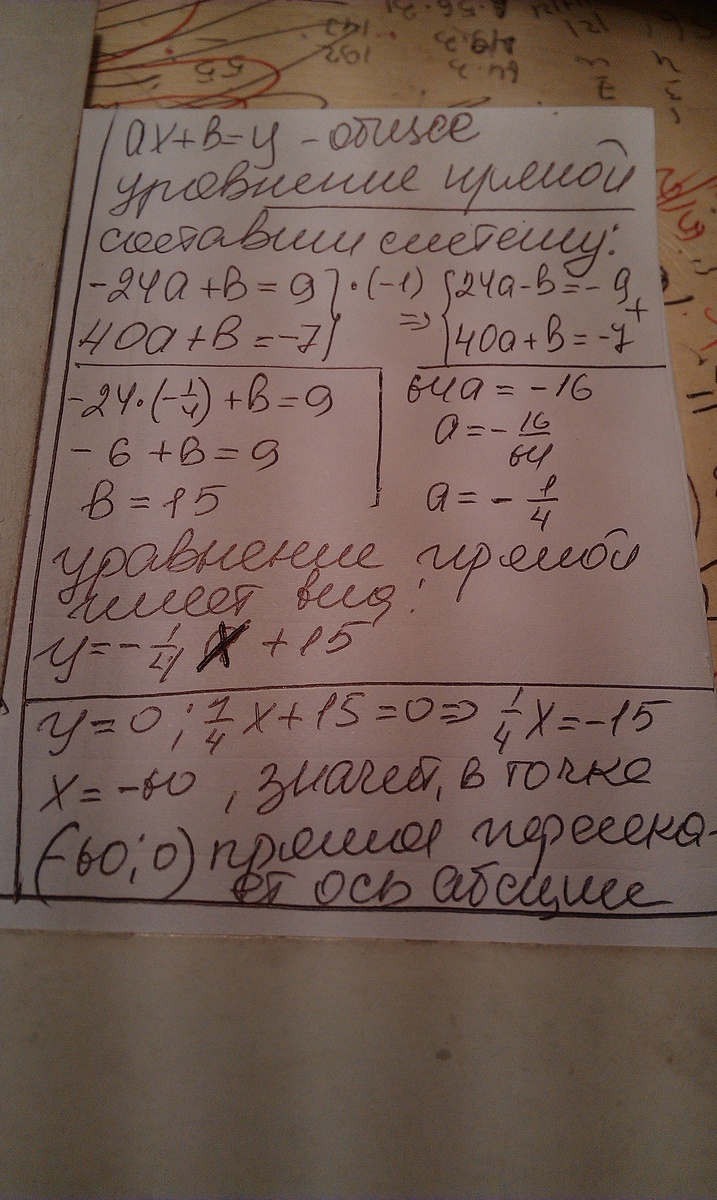 ах+в=у - общее
уравнение прямой
составим систему:
-24а+в=9 } ·(-1) { 24а-в=-9
40а+в=-7 } => { 40а+в=-7 +
-24·(-1/4)+в=9
-6+в=9
в=15
64а=-16
а=-16/64
а=-1/4
уравнение прямой
имеет вид:
у=-1/4 х +15
у=0; 1/4х+15=0=> 1/4х=-15
х=-60, значит, в точке
(-60;0) прямая пересека-
ет ось абсцисс
55
192